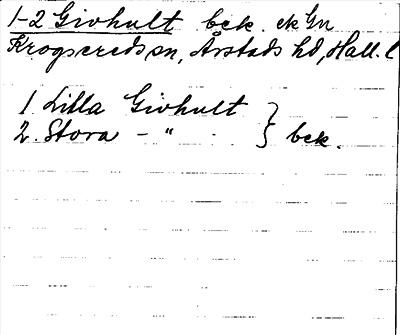 1-2 Givhult bek. ek Gn
Krogsereds sn, Årstads hd, Hall. l
1. Lilla Givhult } bek.
2. Stora - " -